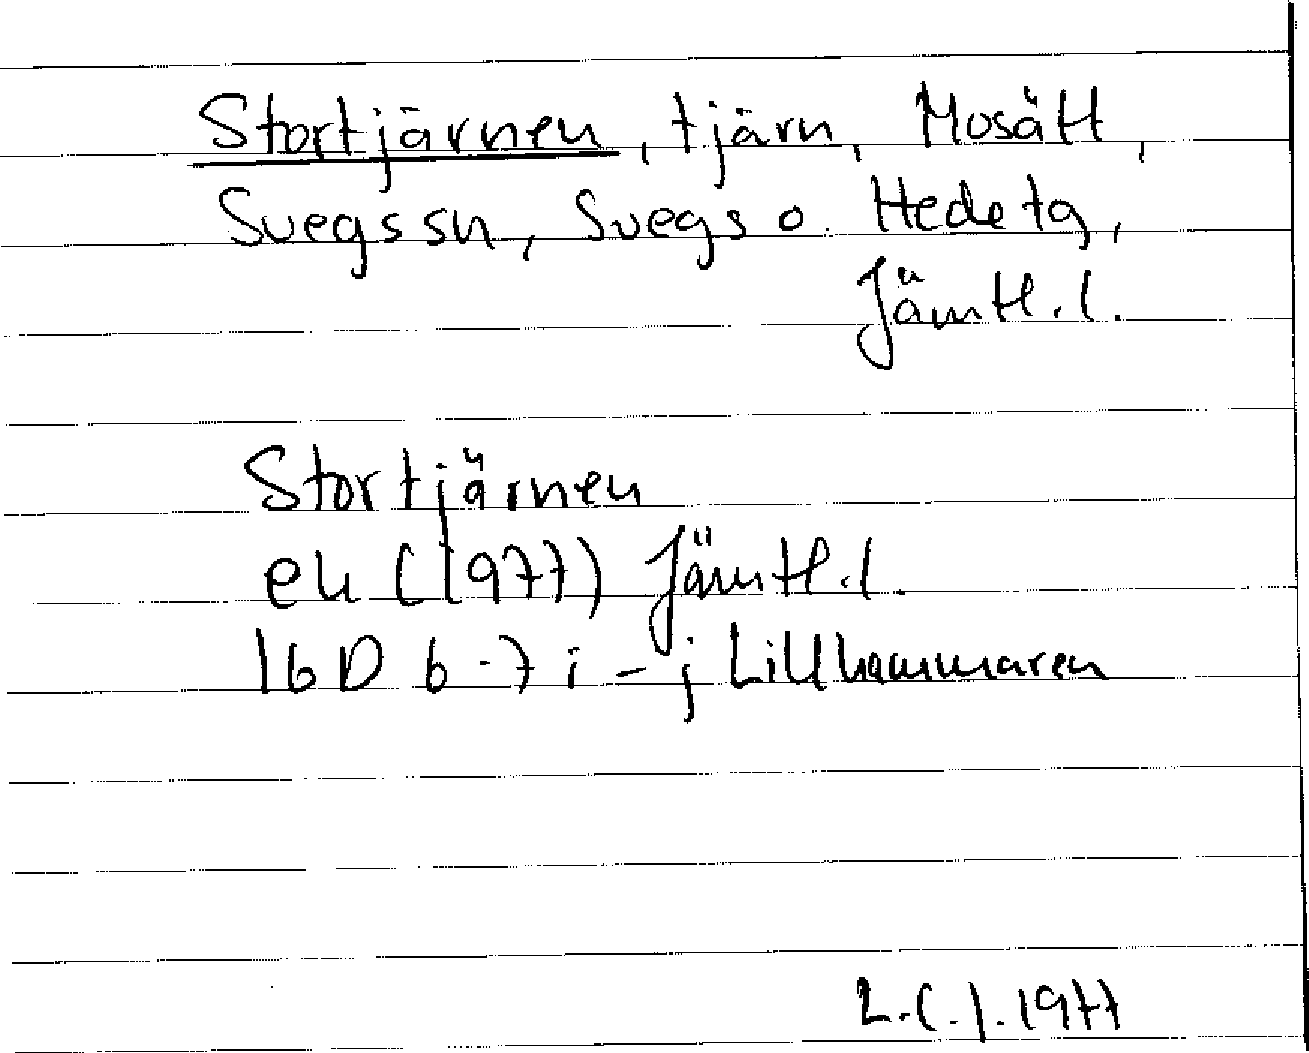 Stortjärnen, tjärn, Mosätt,
Svegs sn, Svegs o. Hede tg,
Jämtl. l.
Stortjärnen
ek (1977) Jämtl. l.
16 D 6-7 i - j Lillhammaren
L.C.J. 1977